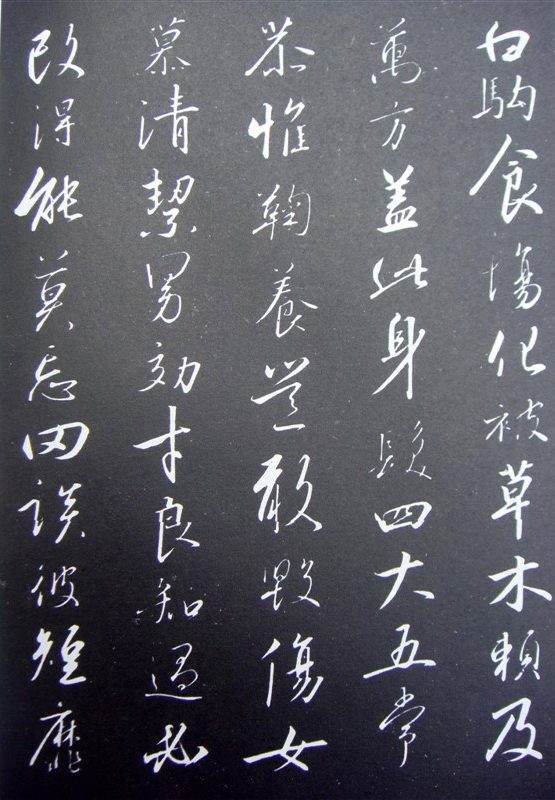 白駒食場化被草木賴及
萬方盖此身髮四大五常
恭惟鞠養豈敢毀傷女
慕清絜男効才良知過必
改得能莫忘罔談彼短靡